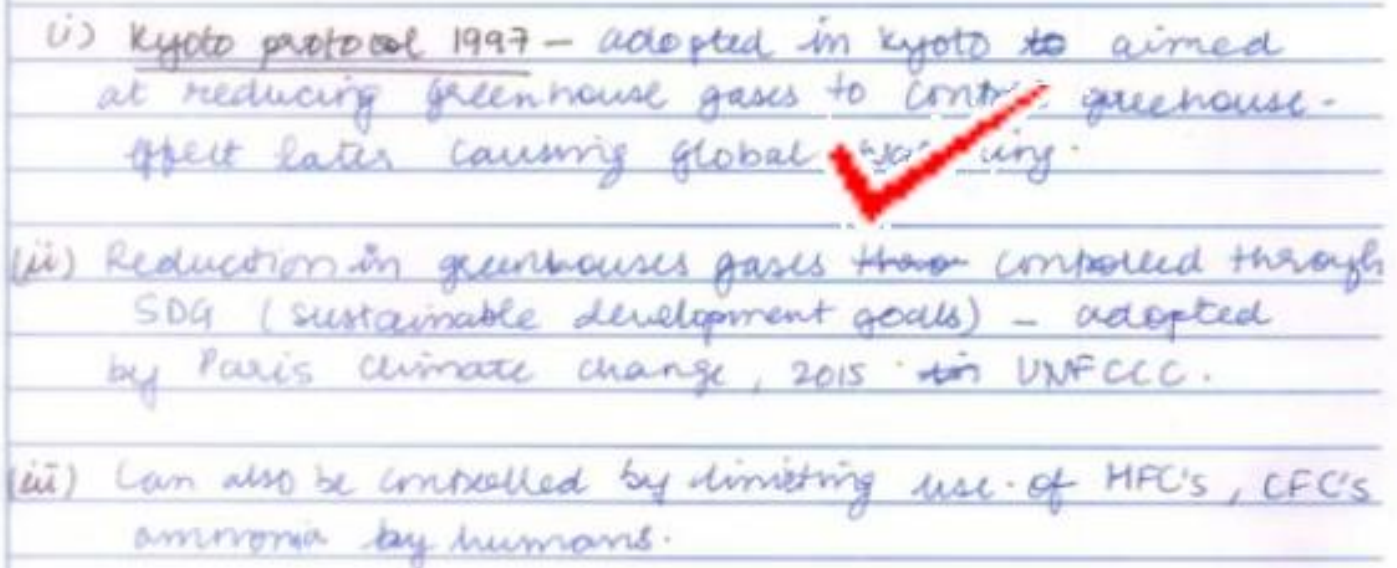 (i) Kyoto protocol 1997 – adopted in kyoto to aimed
at reducing greenhouse gases to control greehouse-
effect later causing global warming.
(ii) Reduction in greenhouses gases controlled through
SDG (sustainable development goals) – adopted
by Paris climate change, 2015 in UNFCCC.
(iii) Can also be controlled by limiting use of HFC's, CFC's
ammonia by humans.